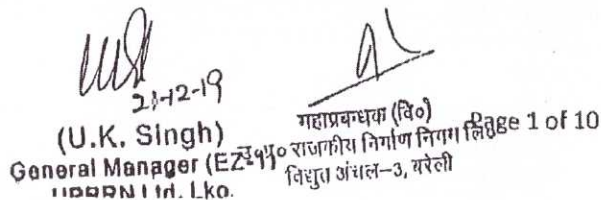 21-12-19
(U.K. Singh)
General Manager (EZ
UPRRN Ltd. Lko.
महाप्रबन्धक (वि०)
उ०प्र० राजकीय निर्माण निगम लि०
विद्युत अंचल-3, बरेली
Page 1 of 10